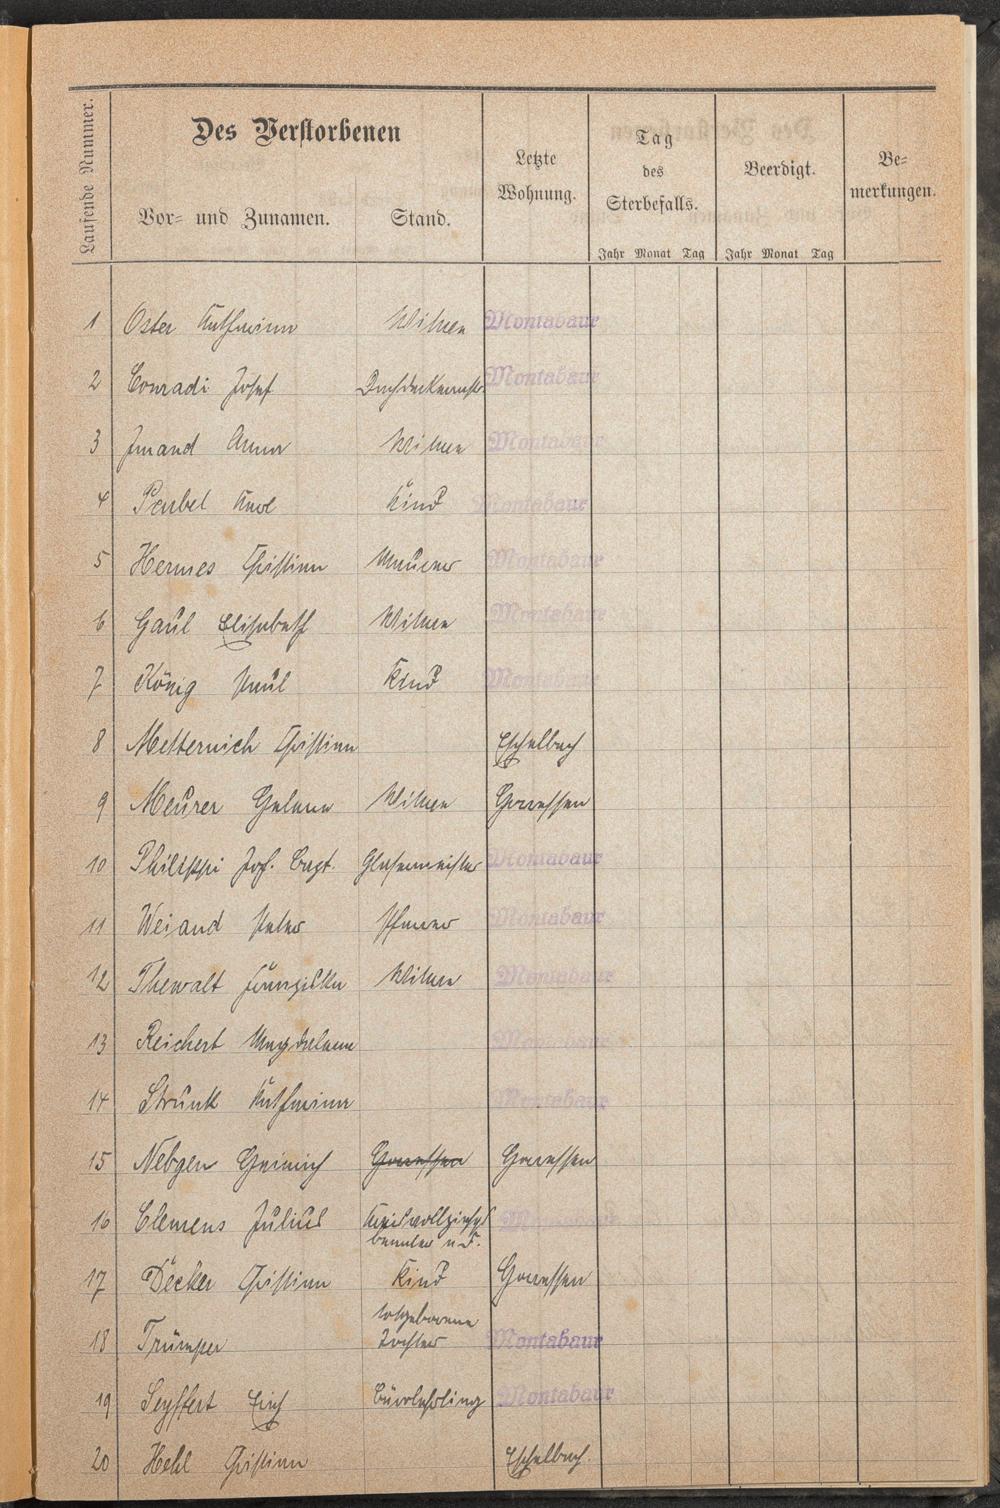 Laufende Nummer.
Des Verstorbenen
Vor= und Zunamen.
Stand.
Letzte
Wohnung.
Tag
des
Sterbefalls.
Jahr Monat Tag
Beerdigt.
Jahr Monat Tag
Be=
merkungen.
1 Oster Katharina Witwe Montabaur
2 Conradi Josef Dachdeckermstr. Montabaur
3 Imand Anna Witwe Montabaur
4 Paubel Karl Kind Montabaur
5 Hermes Christian Maurer Montabaur
6 Gaul Elisabeth Witwe Montabaur
7 König Paul Kind Montabaur
8 Metternich Christian Eschelbach
9 Meurer Helene Witwe Horressen
10 Philippi Jos. Bapt. Glasermeister Montabaur
11 Weiand Peter Pfarrer Montabaur
12 Thewalt Franziska Witwe Montabaur
13 Reichert Magdalena Montabaur
14 Strunk Katharina Montabaur
15 Nebgen Heinrich Horressen Horressen
16 Clemens Julius Kreisvollziehgs Montabaur
beamter a.D.
17 Decker Christian Kind Horressen
totgeborene
18 Trümper Tochter Montabaur
19 Seyffert Erich Bürolehrling Montabaur
20 Hehl Christian Eschelbach.